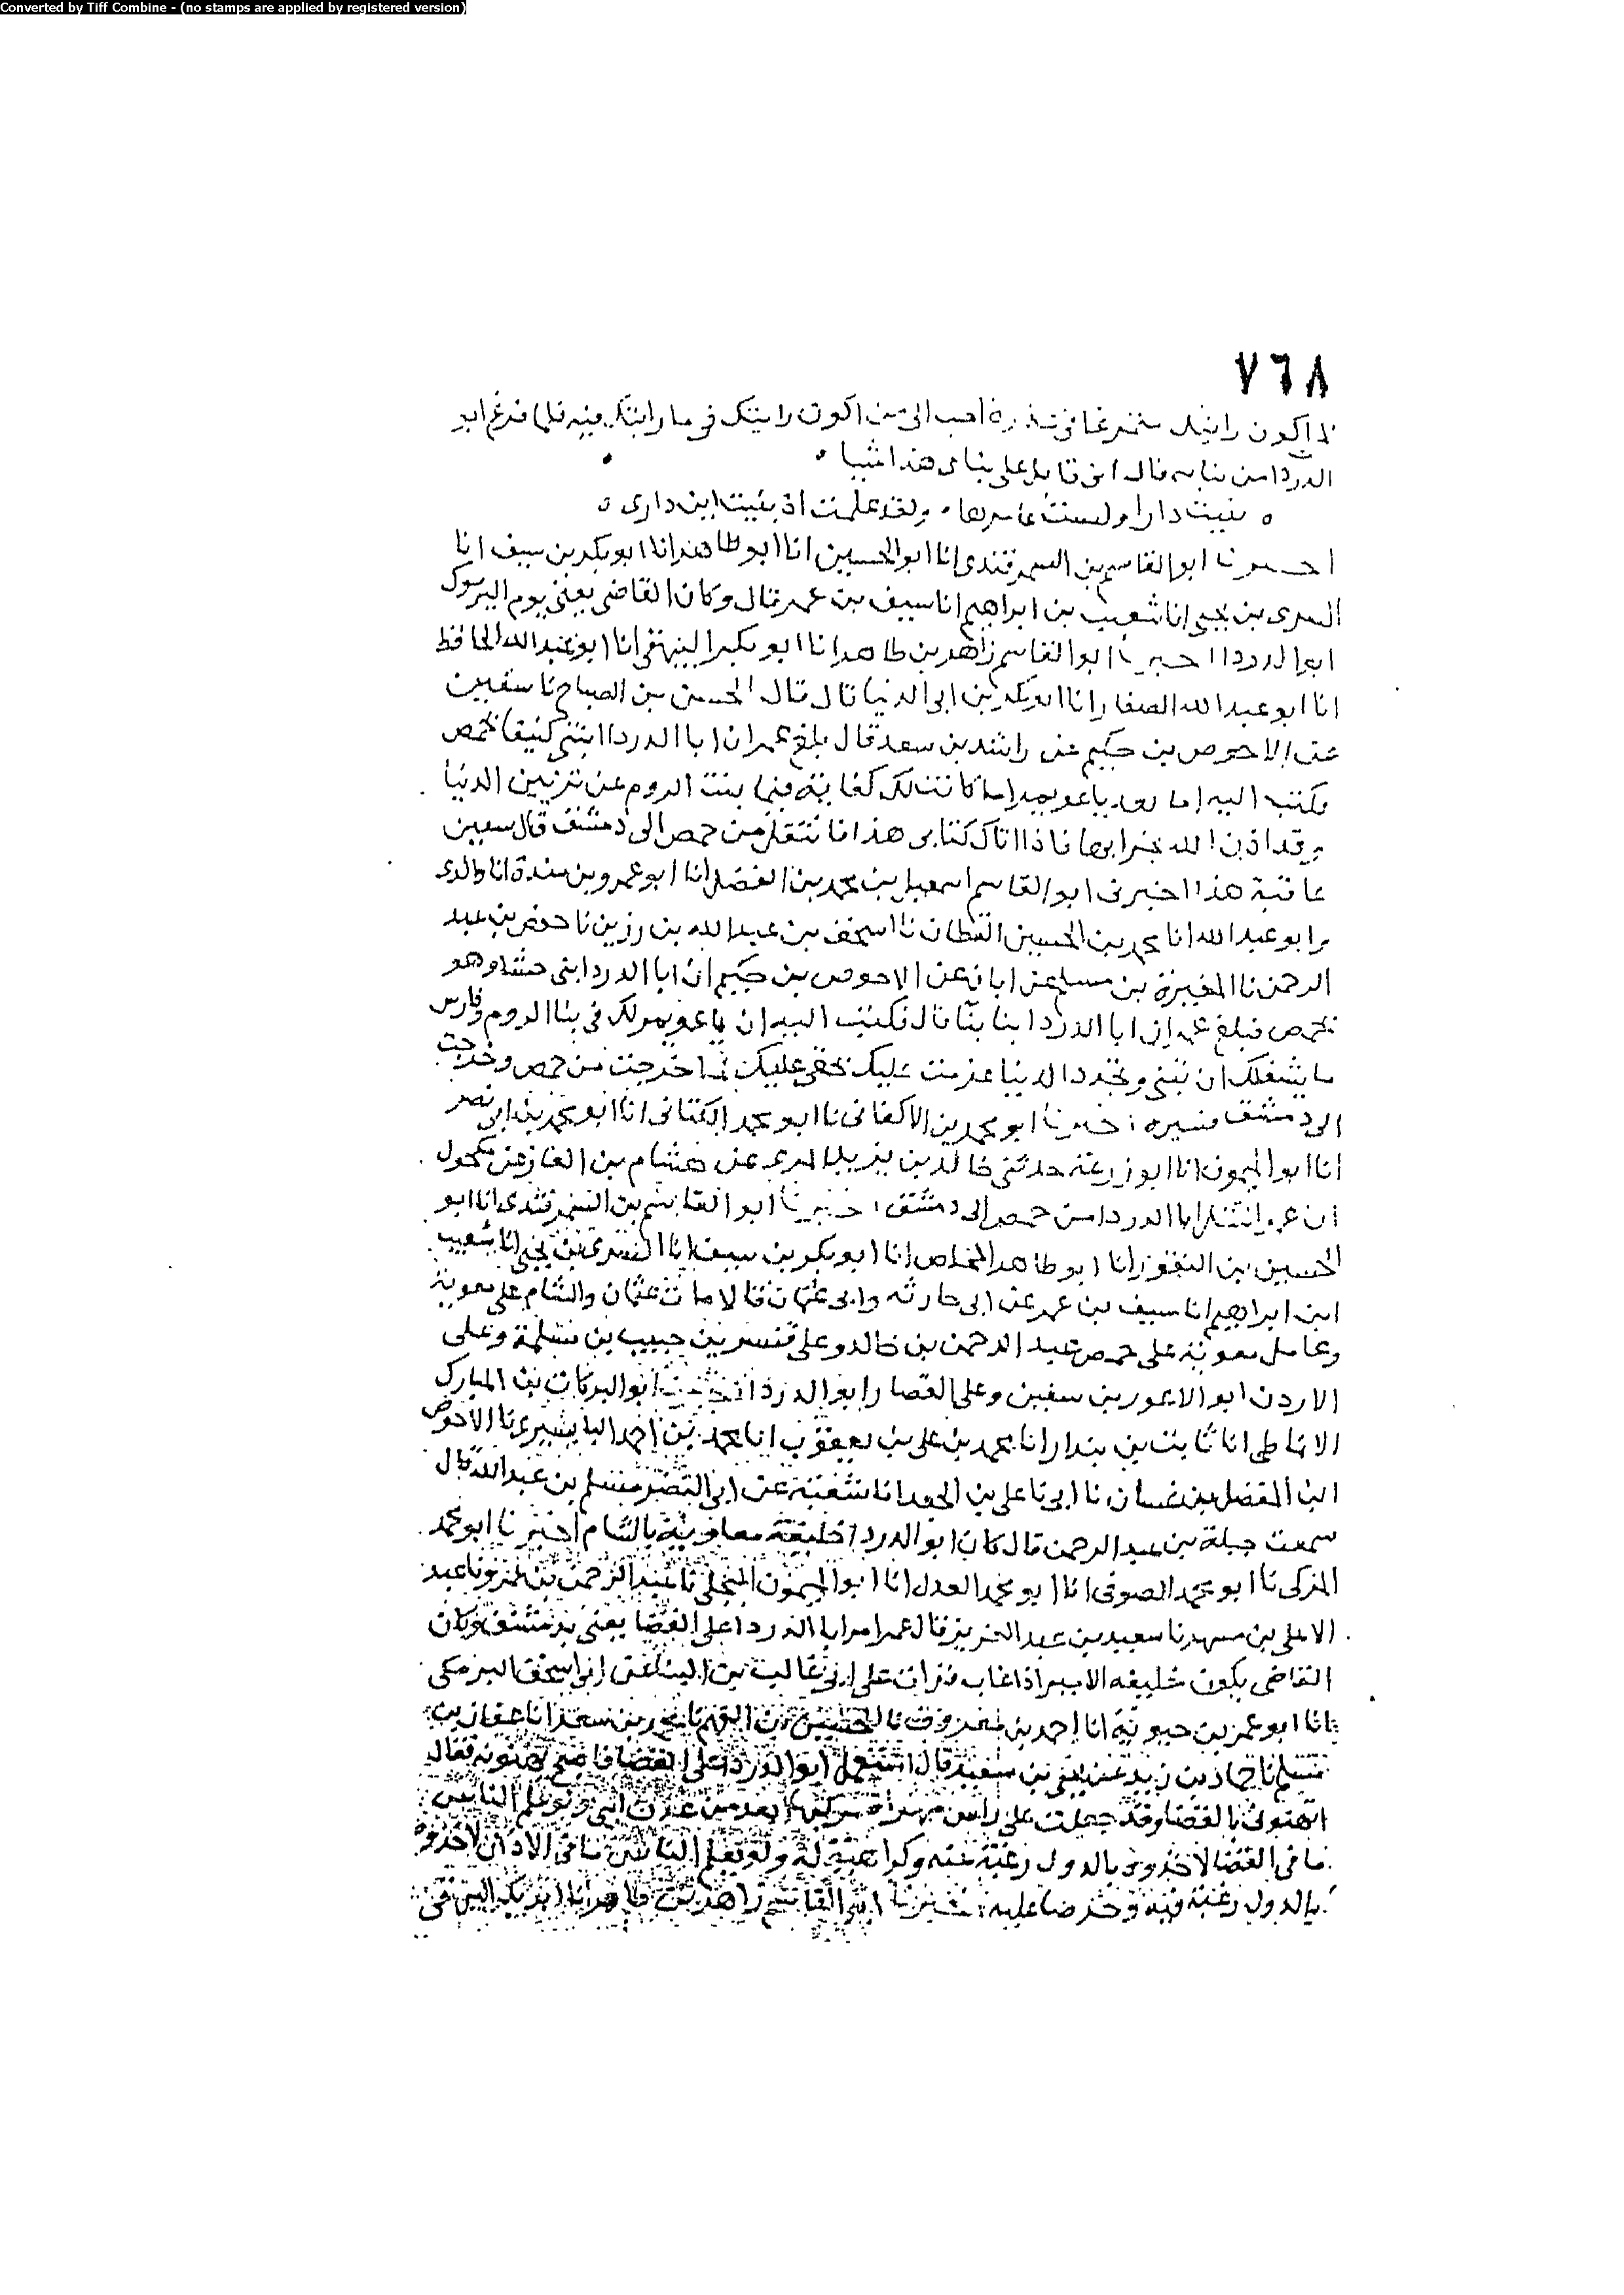 Converted by Tiff Combine - (no stamps are applied by registered version)
٧٦٨
اكون رايتك متمرغا في عذرة احب الى من اكون رايتك في ما رايتك فيه فلما فرغ ابو
الدردا من بنايه قال انى قايل على بناى هذا شيا
بنيت دارا ولست عامرها ولقد علمت اذ بنيت اين دارى
اخبرنا ابو القاسم بن السمرقندى انا ابو الحسين انا ابو طاهر انا ابو بكر بن سيف انا
السرى بن يحيى انا شعيب بن ابراهيم انا سيف بن عمر قال وكان القاضى يعنى يوم اليرموك
ابو الدردا اخبرنا ابو القاسم زاهر بن طاهر انا ابو بكر البيهقى انا ابو عبد الله الحافظ
انا ابو عبد الله الصفار انا ابو بكر بن ابى الدنيا قال قال الحسن بن الصباح نا سفين
عن الاحوص بن حكيم عن راشد بن سعد قال بلغ عمر ان ابا الدردا ابتنى كنيفا بحمص
فكتب اليه اما بعد يا عويمر اما كانت لك كفاية فيما بنت الروم عن تزيين الدنيا
وقد اذن الله بخرابها فاذا اتاك كتابى هذا فانتقل من حمص الى دمشق قال سفين
عاقبة هذا اخبرنى ابو القاسم اسمعيل بن محمد بن الفضل انا ابو عمرو بن مندة انا والدى
ابو عبد الله انا محمد بن الحسين القطان نا اسحق بن عبد الله بن رزين نا حفص بن عبد
الرحمن نا المغيرة بن مسلم عن ابان عن الاحوص بن حكيم ان ابا الدردا بنى حشا وهو
بحمص فبلغ عمر ان ابا الدردا بنا بنا قال فكتب اليه ان يا عويمر لك في بنا الروم وفارس
ما يشغلك ان تبنى وتجدد الدنيا عزمت عليك بحقى عليك لما خرجت من حمص وخرجت
الى دمشق فسيره اخبرنا ابو محمد بن الاكفانى نا ابو محمد الكتانى انا ابو محمد بن ابى نصر
انا ابو الميمون انا ابو زرعة حدثنى خالد بن يزيد المرى عن هشام بن الغاز عن مكحول
ان عمر انتقل ابا الدردا من حمص الى دمشق اخبرنا ابو القاسم بن السمرقندى انا ابو
الحسين بن النقور انا ابو طاهر المخلص انا ابو بكر بن سيف انا السرى بن يحيى انا شعيب
ابن ابراهيم انا سيف بن عمر عن ابى حارثه وابى عثمان قالا مات عثمان والشام على معوية
وعامل معوية على حمص عبد الرحمن بن خالد وعلى قنسرين حبيب بن مسلمة وعلى
الاردن ابو الاعور بن سفين وعلى القضا ابو الدردا اخبرنا ابو البركات بن المبارك
الانماطى انا ثابت بن بندار انا محمد بن على بن يعقوب انا محمد بن احمد البابسيرى نا الاحوص
ابن المفضل بن غسان نا ابى نا على بن الجعد انا شعبة عن ابى النضر مسلم بن عبد الله قال
سمعت جبلة بن عبد الرحمن قال كان ابو الدردا خليفة معاوية بالشام اخبرنا ابو محمد
المزكى نا ابو محمد الصوفى انا ابو محمد العدل انا ابو الميمون البجلى نا عبد الرحمن بن عمرو نا عبد
الاعلى بن مسهر نا سعيد بن عبد العزيز قال عمر امر ابا الدردا على القضا يعنى بدمشق وكان
القاضى يكون خليفه الامير اذا غاب قرات على ابى غالب بن البنا عن ابى اسحق البرمكى
انا ابو عمر بن حيوية انا احمد بن معروف نا الحسين بن الفهم نا محمد بن سعد انا عفان بن
مسلم نا حماد بن زيد عن يحيى بن سعيد قال استعمل ابو الدردا على القضا فاصبح يهنونه فقال
اتهنونى بالقضا وقد جعلت على راس مهواة بعد من عدن ابين ولو علم الناس
ما فى القضا لاخذوه بالدول رغبة عنه وكراهية له ولو يعلم الناس ما فى الاذان لاخذوه
بالدول رغبة فيه وحرصا عليه اخبرنا ابو القاسم زاهر بن طاهر انا ابو بكر البيهقى